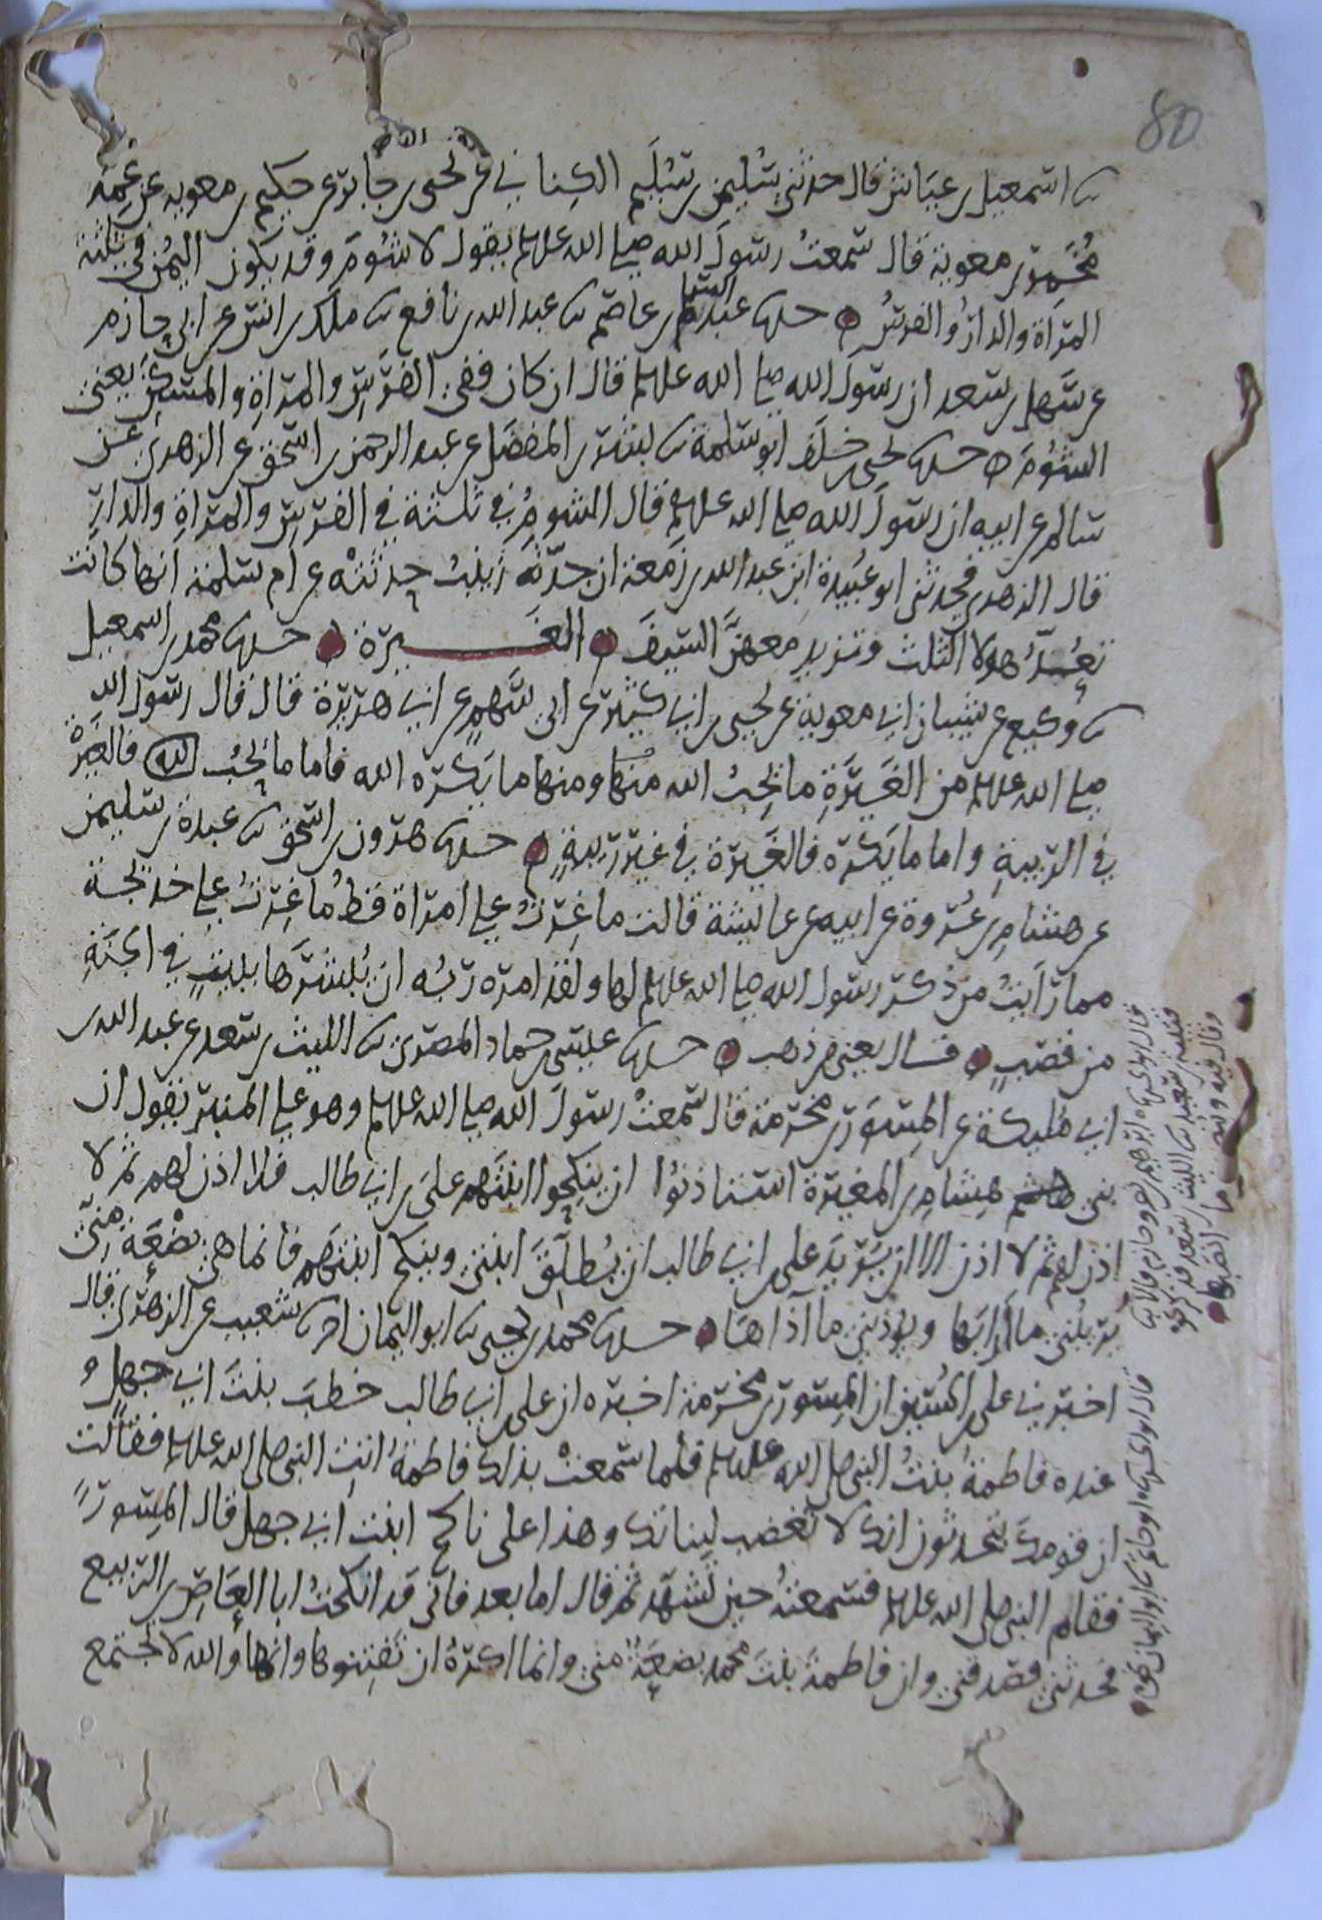 80
الطائي
ثنا اسمعيل بن عياش قال حدثني سليمن بن سليم الكناني عن يحيى بن جابر عن حكيم بن معويه عن عمه
مخمر بن معوية قال سمعت رسول الله صلى الله عليه وسلم يقول لا شوم وقد يكون اليمن في ثلثة
المراة والدار والفرس حدثنا عبد السلم بن عاصم ثنا عبد الله بن نافع ثنا ملك بن انس عن ابي حازم
عن سهل بن سعد ان رسول الله صلى الله عليه وسلم قال ان كان ففي الفرس والمراة والمسكن يعني
الشوم حدثنا يحيى بن خلف ابو سلمة ثنا بشر بن المفضل عن عبد الرحمن بن اسحق عن الزهري عن
سالم عن ابيه ان رسول الله صلى الله عليه وسلم قال الشوم في ثلثة في الفرس والمراة والدار
قال الزهري فحدثني ابو عبيدة ابن عبد الله بن زمعة ان جدته زينب حدثته عن ام سلمة انها كانت
تعد هولا الثلث وتزيد معهن السيف الغيرة حدثنا محمد بن اسمعيل
ثنا وكيع عن شيبان ابي معوية عن يحيى بن ابي كثير عن ابي سهم عن ابي هريرة قال قال رسول الله
صلى الله عليه وسلم من الغيرة ما يحب الله منها ومنها ما يكره الله فاما ما يحب الله فالغيرة
في الريبة واما ما يكره فالغيرة في غير ريبة حدثنا هرون بن اسحق ثنا عبدة بن سليمن
عن هشام بن عروة عن ابيه عن عايشة قالت ما غرت على امراة قط ما غرت على خديجة
مما رايت من ذكر رسول الله صلى الله عليه وسلم لها ولقد امره ربه ان يبشرها ببيت في الجنة
من قصب قال يعني من ذهب حدثنا عيسى بن حماد المصري ثنا الليث بن سعد عن عبد الله بن
ابي مليكة عن المسور بن مخرمة قال سمعت رسول الله صلى الله عليه وسلم وهو على المنبر يقول ان
بني هشام بن المغيرة استاذنوا ان ينكحوا ابنتهم علي بن ابي طالب فلا اذن لهم ثم لا
اذن لهم ثم لا اذن الا ان يريد علي بن ابي طالب ان يطلق ابنتي وينكح ابنتهم فانما هي بضعة مني
يريبني ما رابها ويوذيني ما آذاها حدثنا محمد بن يحيى ثنا ابو اليمان اخبرنا شعيب عن الزهري قال
اخبرني علي بن الحسين ان المسور بن مخرمة اخبره ان علي بن ابي طالب خطب بنت ابي جهل و
عنده فاطمة بنت النبي صلى الله عليه وسلم فلما سمعت بذلك فاطمة اتت النبي صلى الله عليه وسلم فقالت
ان قومك يتحدثون انك لا تغضب لبناتك وهذا علي ناكح ابنت ابي جهل قال المسور
فقام النبي صلى الله عليه وسلم فسمعته حين تشهد ثم قال اما بعد فاني قد انكحت ابا العاص بن الربيع
فحدثني فصدقني وان فاطمة بنت محمد بضعة مني وانما اكره ان تفتنوها وانها والله لا تجتمع
قتيبة بن سعيد ثنا الليث بن سعد فذكر نحوه